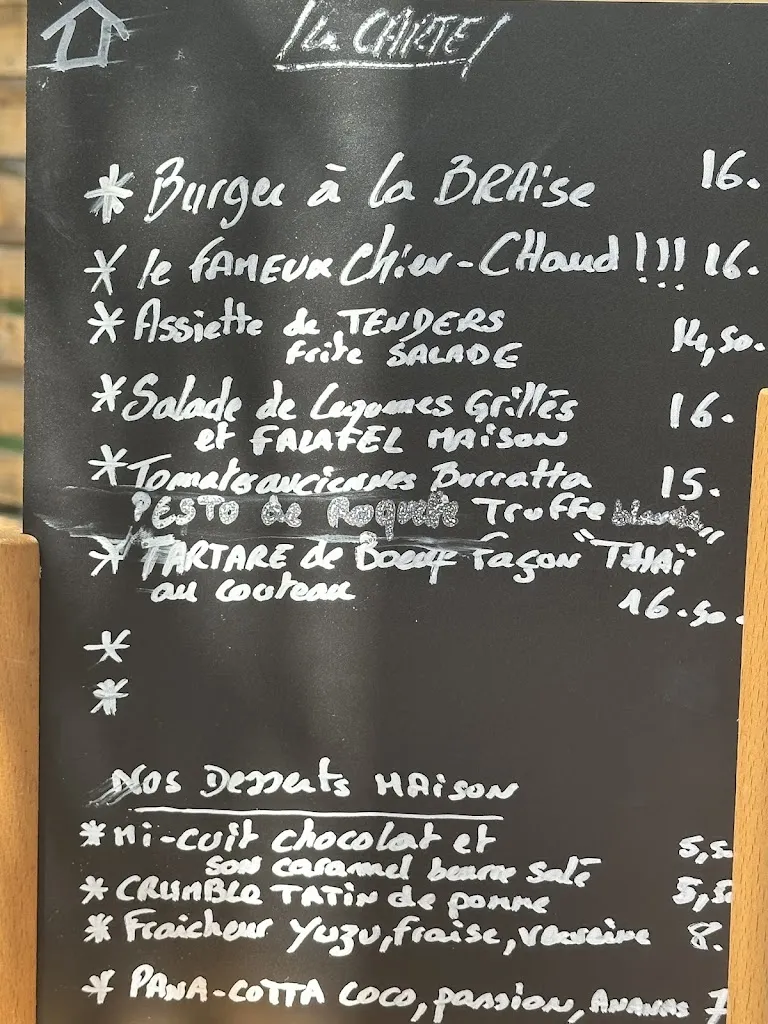 la CARTE
* Burger à la BRAise 16.
* le FAMEUX Chien-CHaud !!! 16.
* Assiette de TENDERS 14,50.
frite SALADE
* Salade de Legumes Grillés 16.
et FALAFEL MAISON
* Tomates anciennes Burratta 15.
PESTO de Roquette Truffe blanche
* TARTARE de Boeuf façon "THAÏ"
au couteau 16.50.
*
*
Nos Desserts MAISON
* Mi-cuit chocolat et 5,5
son caramel beurre salé
* CRUMBLE TATIN de pomme 5,5
* Fraicheur Yuzu, fraise, verveine 8.
* PANA-COTTA COCO, passion, ANANAS 7